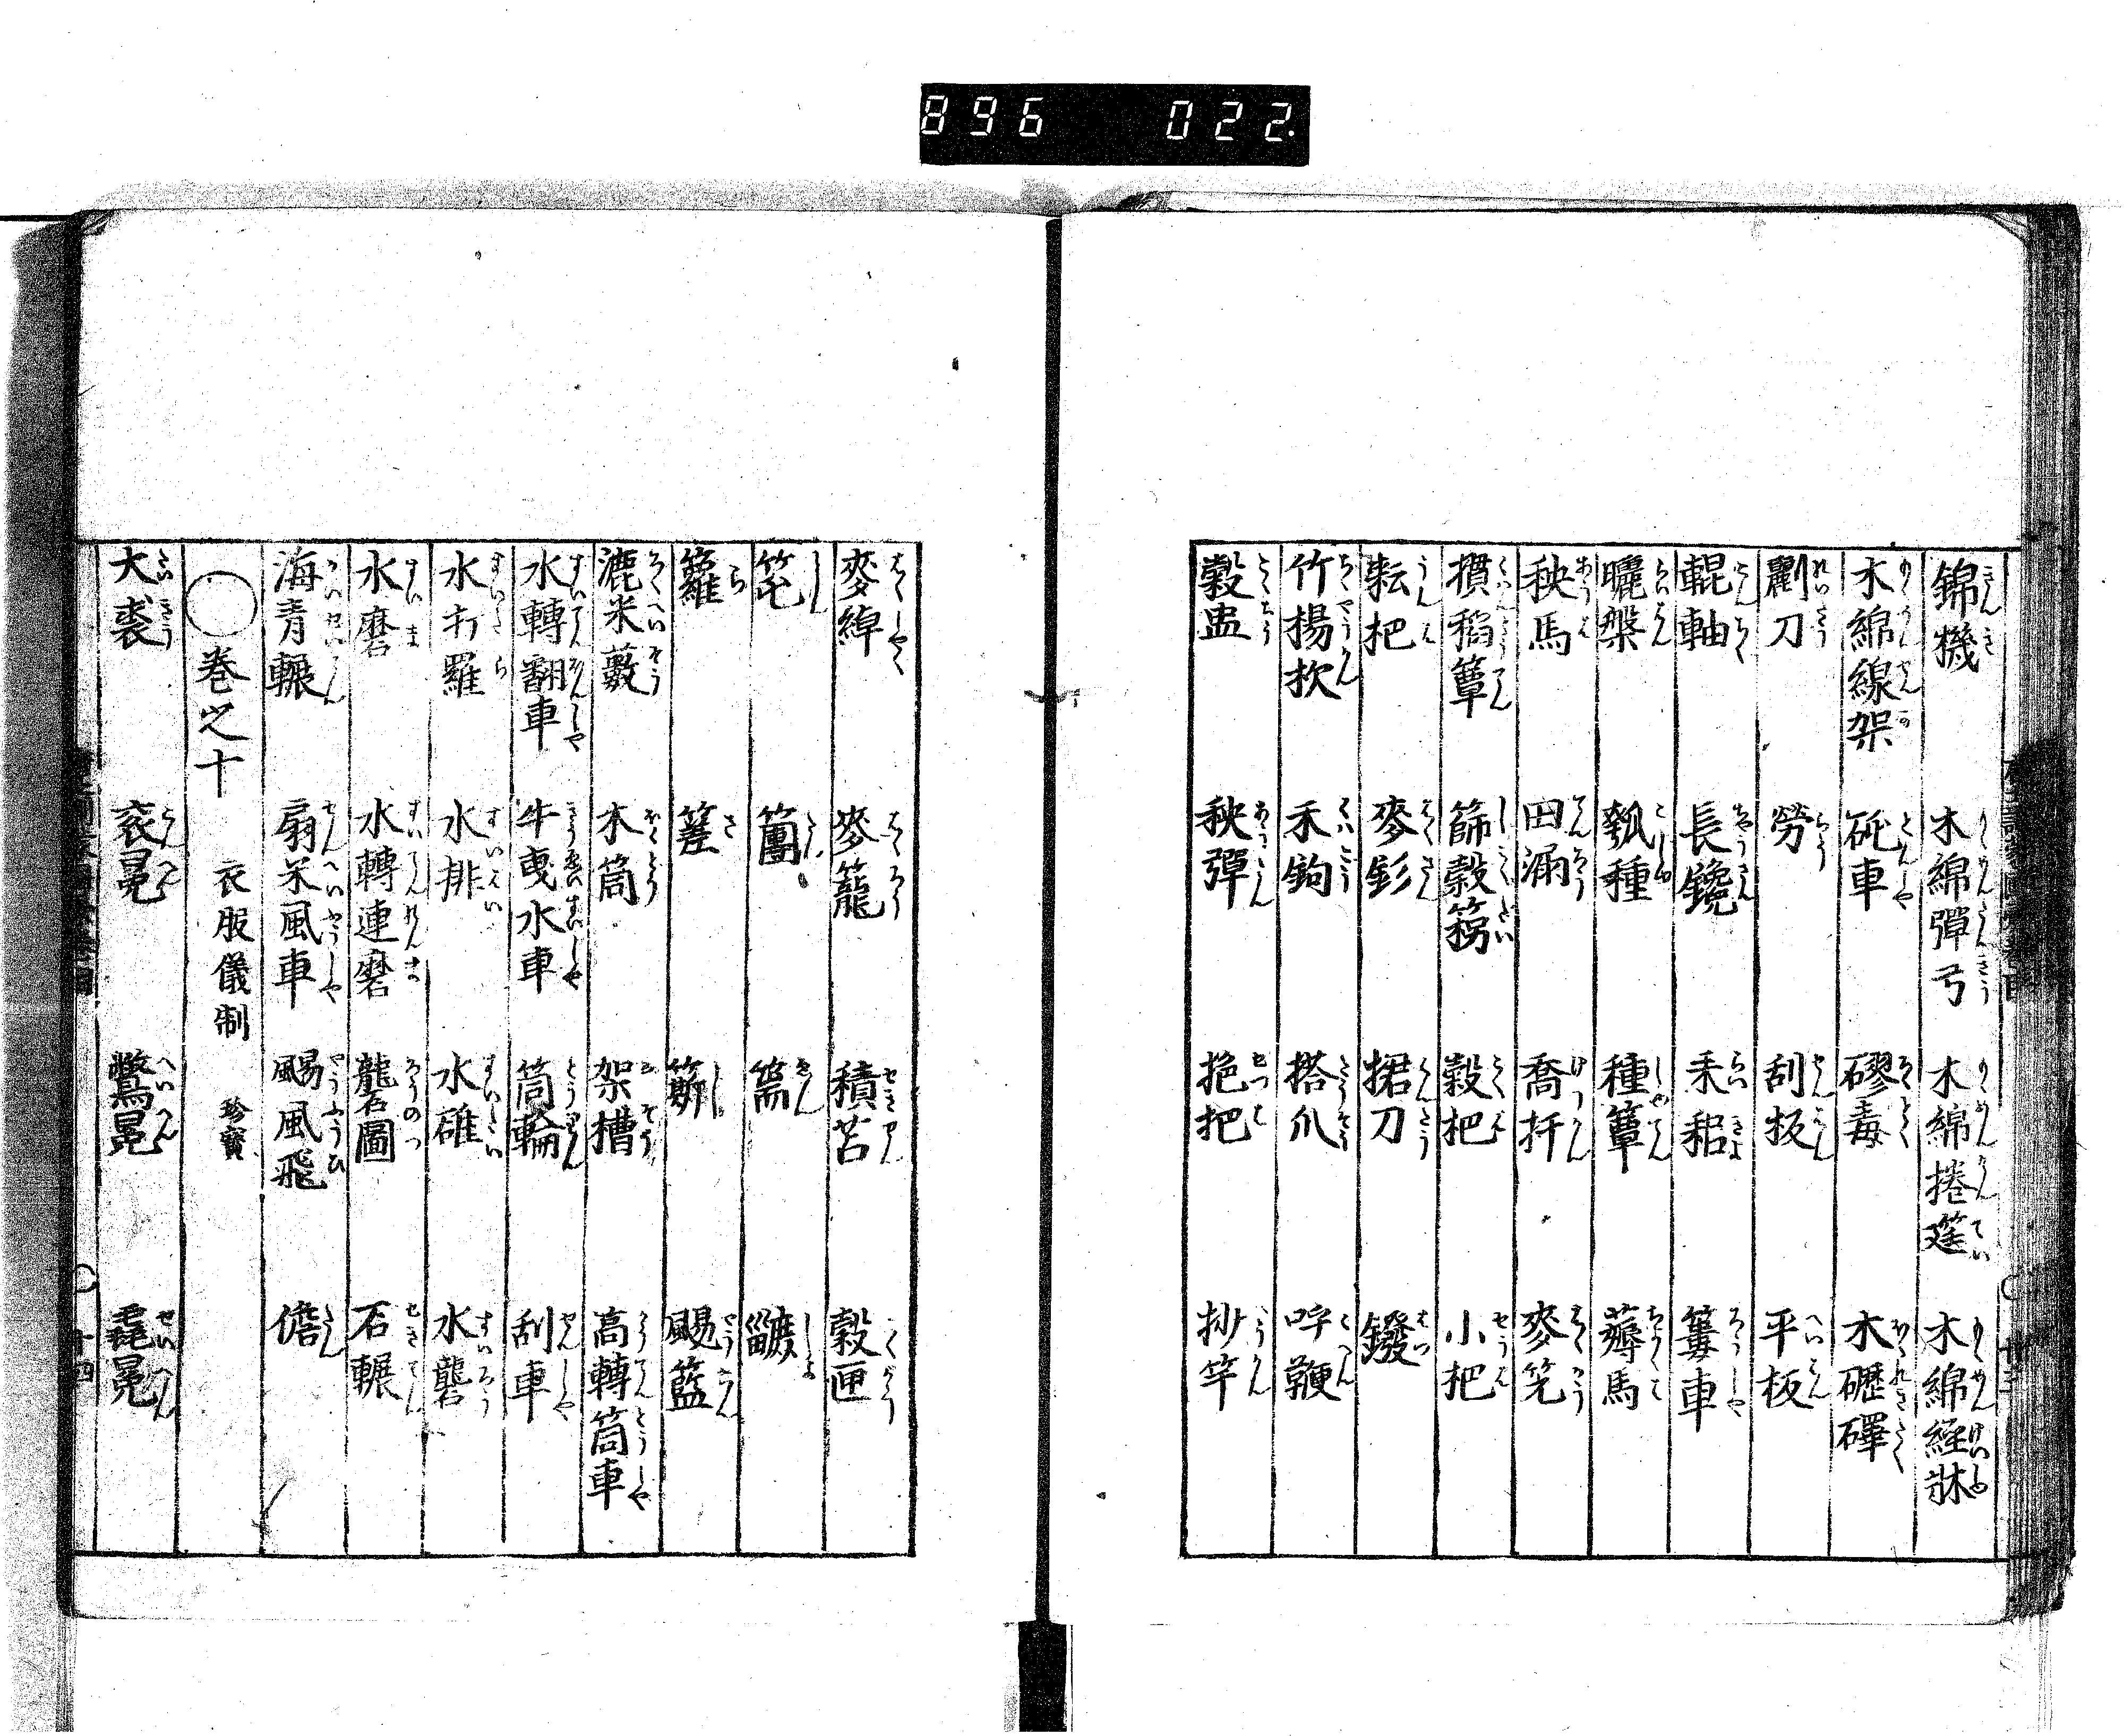 896 022.
錦機 木綿彈弓 木綿捲筳 木綿經牀
木綿線架 砘車 磟毒 木礰礋
劚刀 勞 刮板 平板
輥軸 長鑱 耒耜 簍車
曬槃 瓠種 種簟 薅馬
秧馬 田漏 喬扦 麥笐
摜稻簟 篩穀箉 穀杷 小杷
耘杷 麥釤 捃刀 鏺
竹揚杴 禾鉤 搭爪 呼鞭
穀盅 秧彈 抄竿
麥綽 麥籠 積苫 穀匣
笹 篅
籮 簁 颺籃
漉米藪 木筒 架槽 高轉筒車
水轉翻車 牛曳水車 筒輪 刮車
水打羅 水排 水碓 水礱
水磨 水轉連磨 礱圖 石輾
海青輾 扇米風車 颺風飛 儋
○巻之十 衣服儀制 珍寶
大裘 袞冕 鷩冕 毳冕